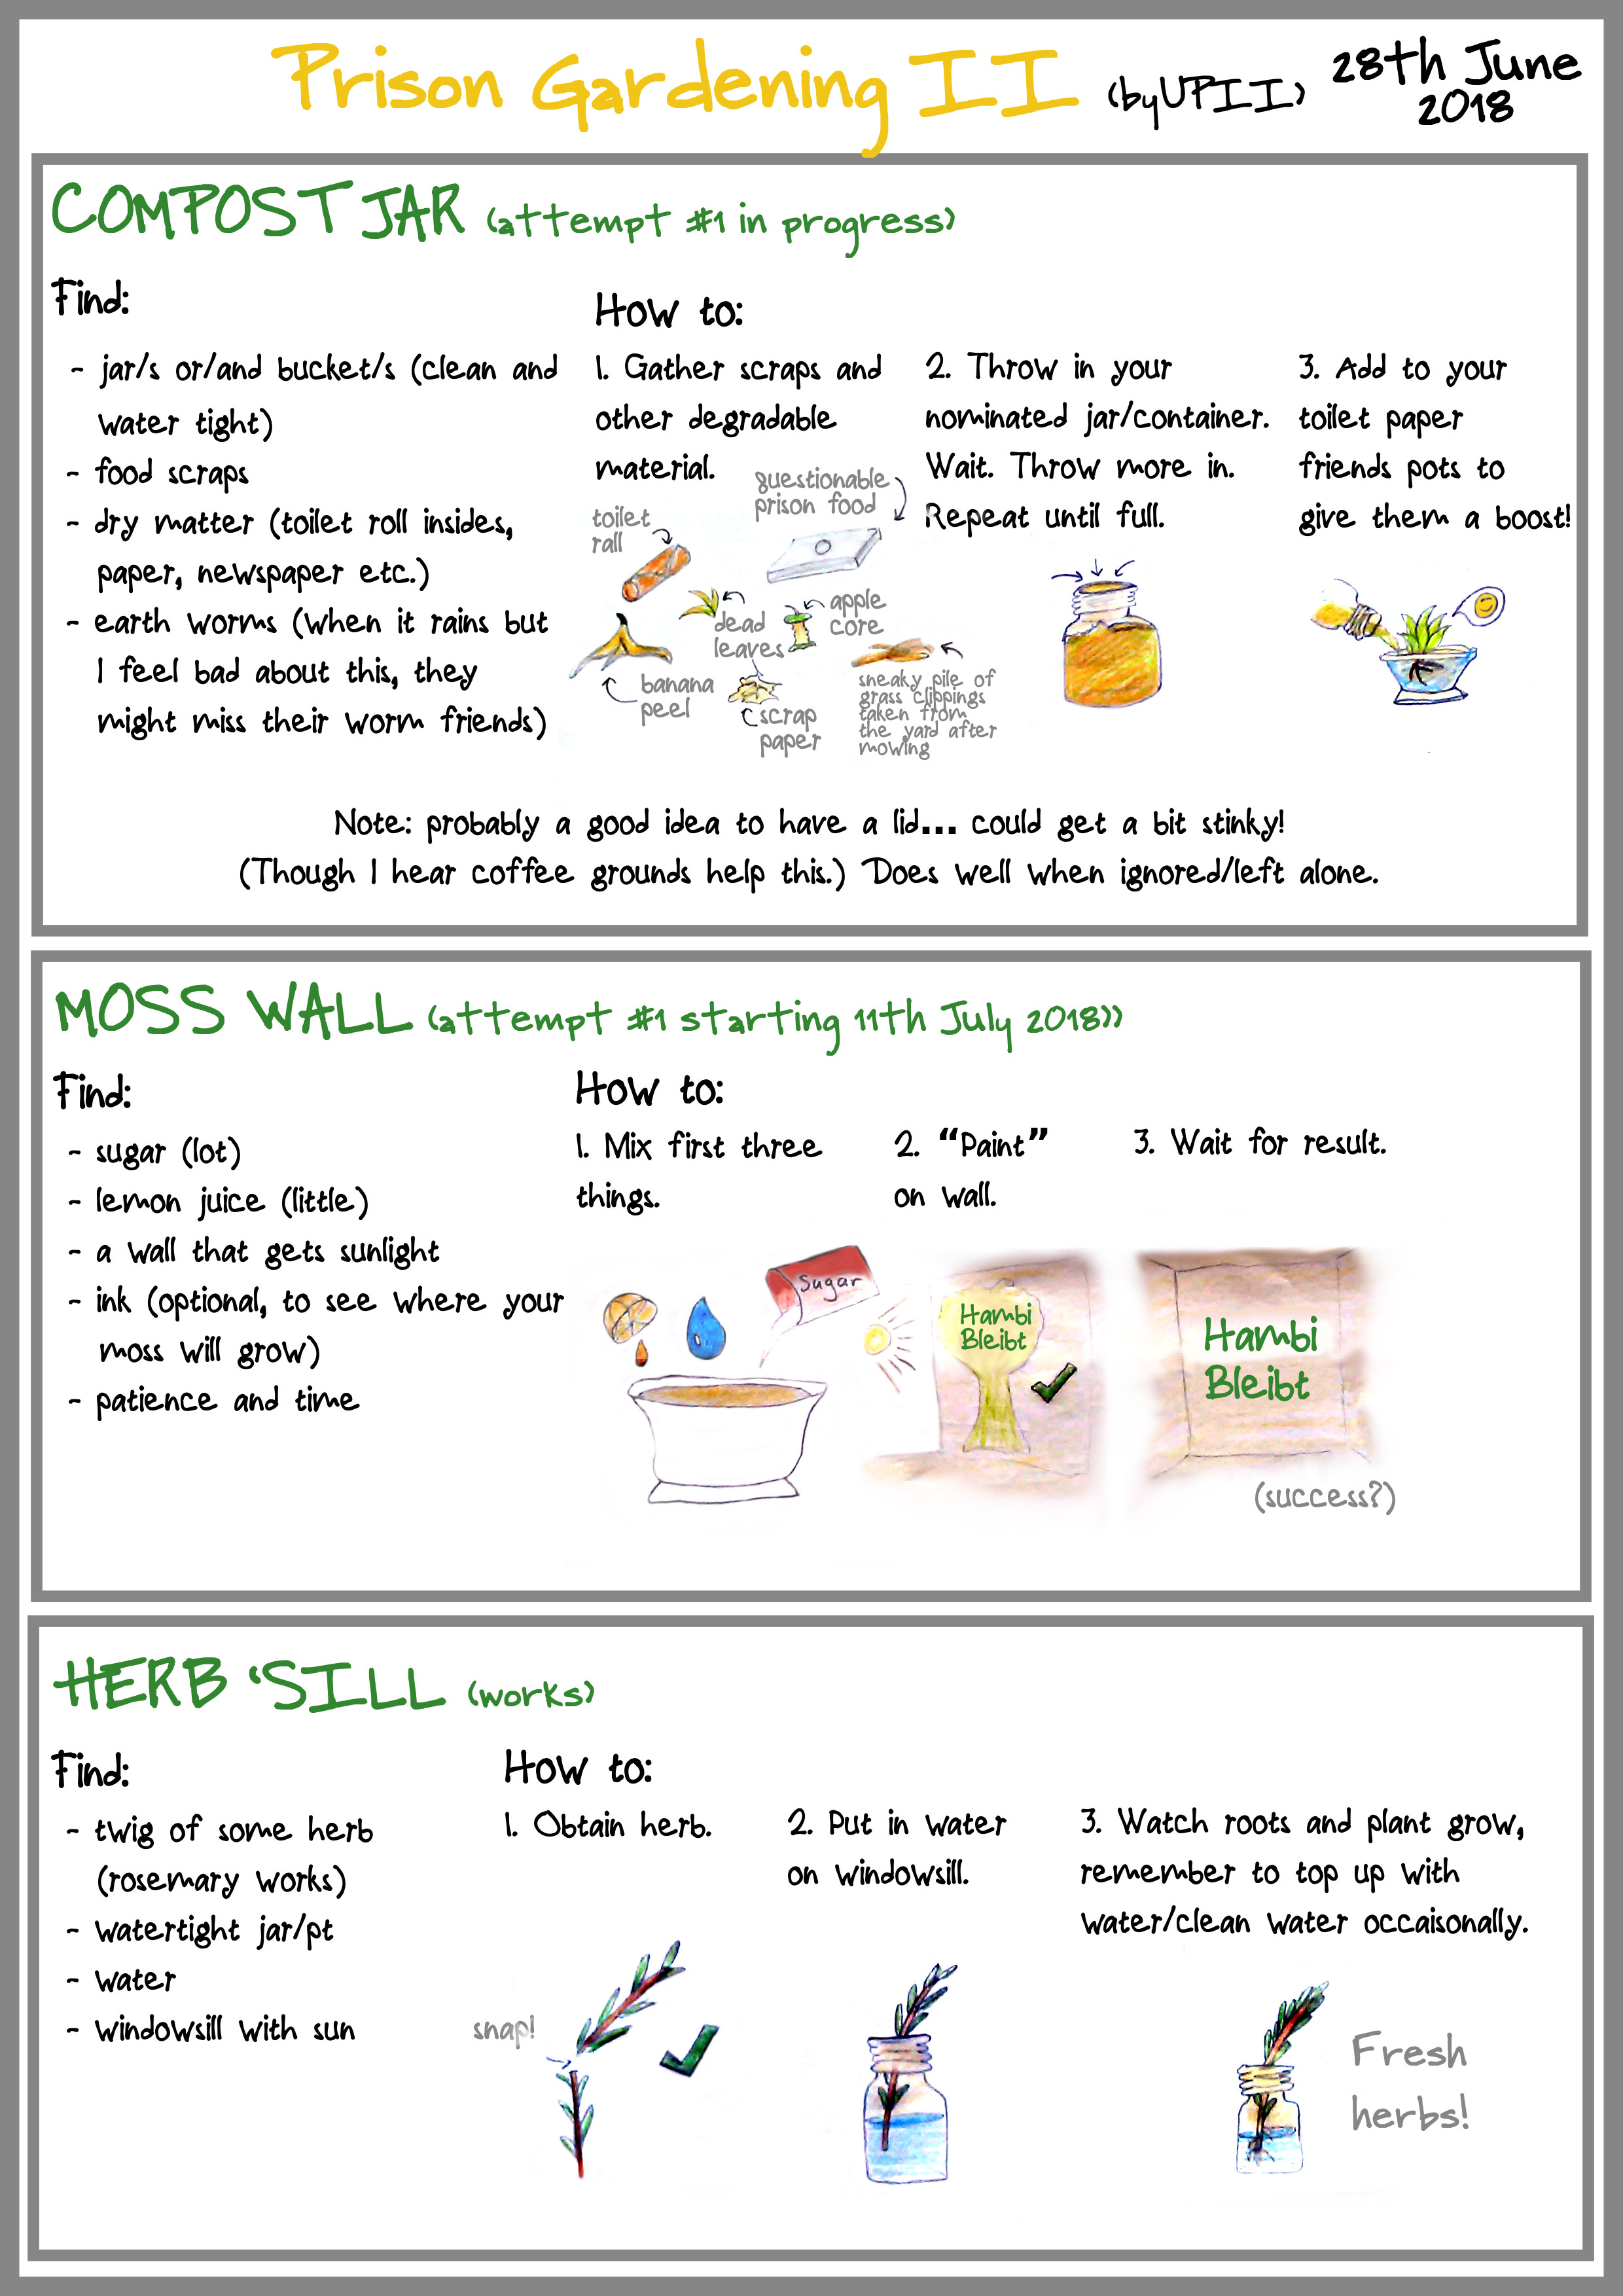 Prison Gardening II (by UPII) 28th June
2018
COMPOST JAR (attempt #1 in progress)
Find:
- jar/s or/and bucket/s (clean and
water tight)
- food scraps
- dry matter (toilet roll insides,
paper, newspaper etc.)
- earth worms (when it rains but
I feel bad about this, they
might miss their worm friends)
How to:
1. Gather scraps and
other degradable
material.
toilet
rall
questionable
prison food
dead
leaves
apple
core
banana
peel
scrap
paper
sneaky pile of
grass clippings
taken from
the yard after
mowing
2. Throw in your
nominated jar/container.
Wait. Throw more in.
Repeat until full.
3. Add to your
toilet paper
friends pots to
give them a boost!
Note: probably a good idea to have a lid... could get a bit stinky!
(Though I hear coffee grounds help this.) Does well when ignored/left alone.
MOSS WALL (attempt #1 starting 11th July 2018))
Find:
- sugar (lot)
- lemon juice (little)
- a wall that gets sunlight
- ink (optional, to see where your
moss will grow)
- patience and time
How to:
1. Mix first three
things.
Sugar
2. “Paint”
on wall.
Hambi
Bleibt
3. Wait for result.
Hambi
Bleibt
(success?)
HERB 'SILL (works)
Find:
- twig of some herb
(rosemary works)
- watertight jar/pt
- water
- windowsill with sun
How to:
1. Obtain herb.
snap!
2. Put in water
on windowsill.
3. Watch roots and plant grow,
remember to top up with
water/clean water occaisonally.
Fresh
herbs!